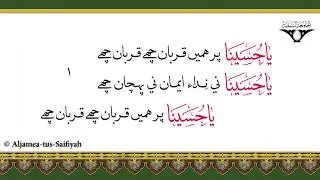 ياحُسَيْنَا پر هميں قربان چھے قربان چھے
ياحُسَيْنَا ني نداء ايمان ني پہچان چھے
ياحُسَيْنَا پر هميں قربان چھے قربان چھے
١
© Aljamea-tus-Saifiyah